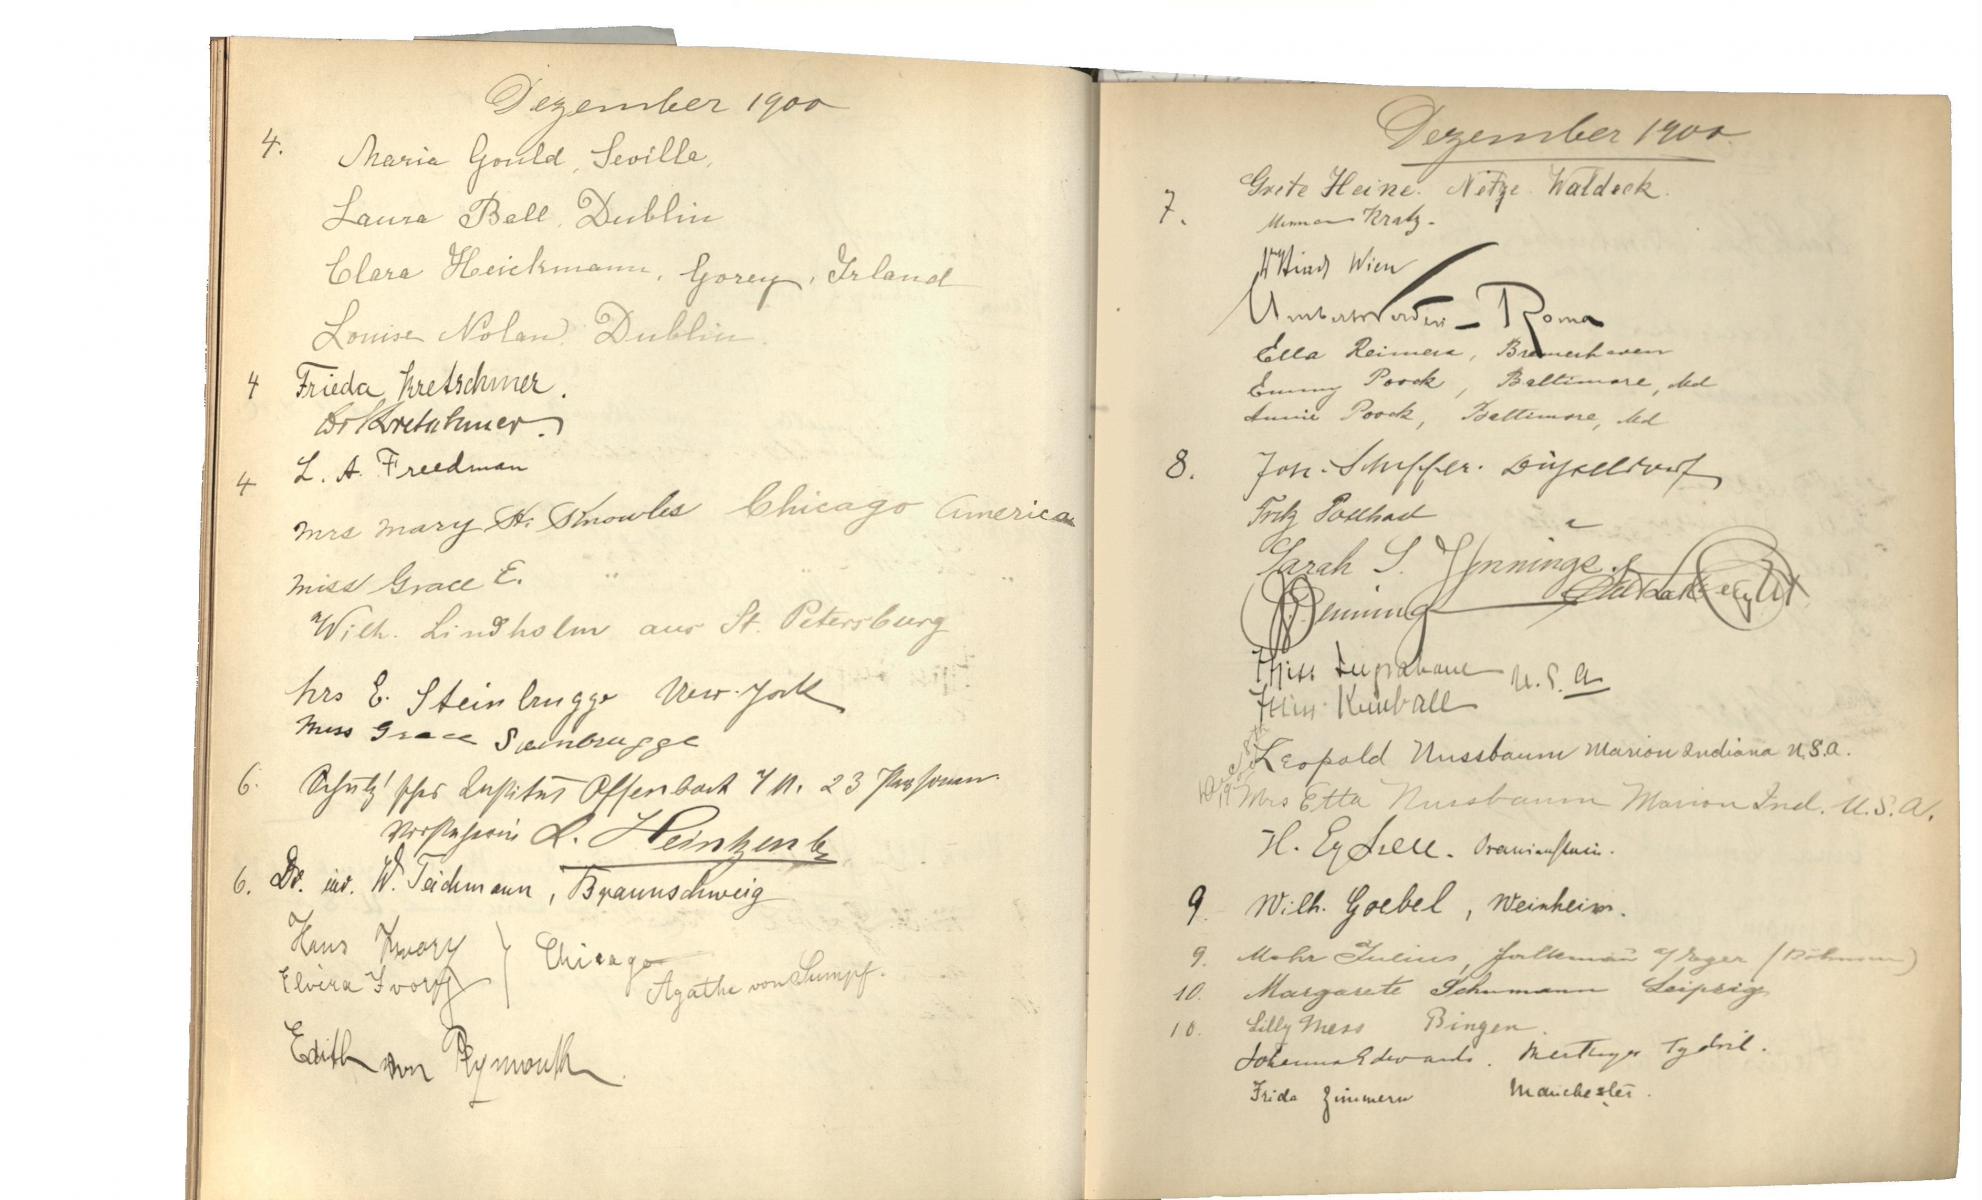 Dezember 1900
4. Maria Gould, Seville,
Laura Bell, Dublin
Clara Heickmann, Gorey, Irland
Louise Nolan, Dublin.
4 Frieda Kretschmer.
Dr Kretschmer.
4 L. A. Freedman
Mrs Mary H. Knowles Chicago America
Miss Grace E. " "
Wilh. Lindholm aus St. Petersburg
Mrs E. Steinbrugge New-York
Miss Grace Steinbrugge
6. Institut Offenbach a/M. 23 Personen.
Vorsteherin L.
6. Dr. W. Teichmann, Braunschweig
Hans Ivory
Elvira Ivory } Chicago
Agathe von Sumpf.
Edith von Plymouth
Dezember 1900
7. Grete Heine. Netze Waldeck.
Kratz.
Wien
Umberto Roma
Ella Reimers, Bremerhaven
Emmy Poock, Baltimore, Md
Annie Poock, Baltimore, Md
8. Joh. Scheffer. Düsseldorf
Fritz Potthast
Sarah S. Jennings.
Jennings
Miss U.S.A
Miss Kimball
Leopold Nussbaum Marion Indiana U.S.A.
Mrs Etta Nussbaum Marion Ind. U.S.A.
H. Oranienstein.
9. Wilh. Goebel, Weinheim.
9. Mohr Julius, Falkenau a/Eger (Böhmen)
10. Margarete Schumann Leipzig
10. Lilly Mess Bingen.
Johanna Edwards. Merthyr Tydvil.
Frida Zimmern Manchester.